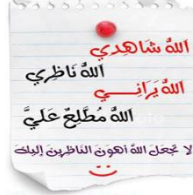 اللهُ شَاهِدِي
اللهُ نَاظِرِي
اللهُ يَرَانِــي
اللهُ مُطَّلِعٌ عَلَيَّ
لا تجعل الله أهون الناظرين إليك